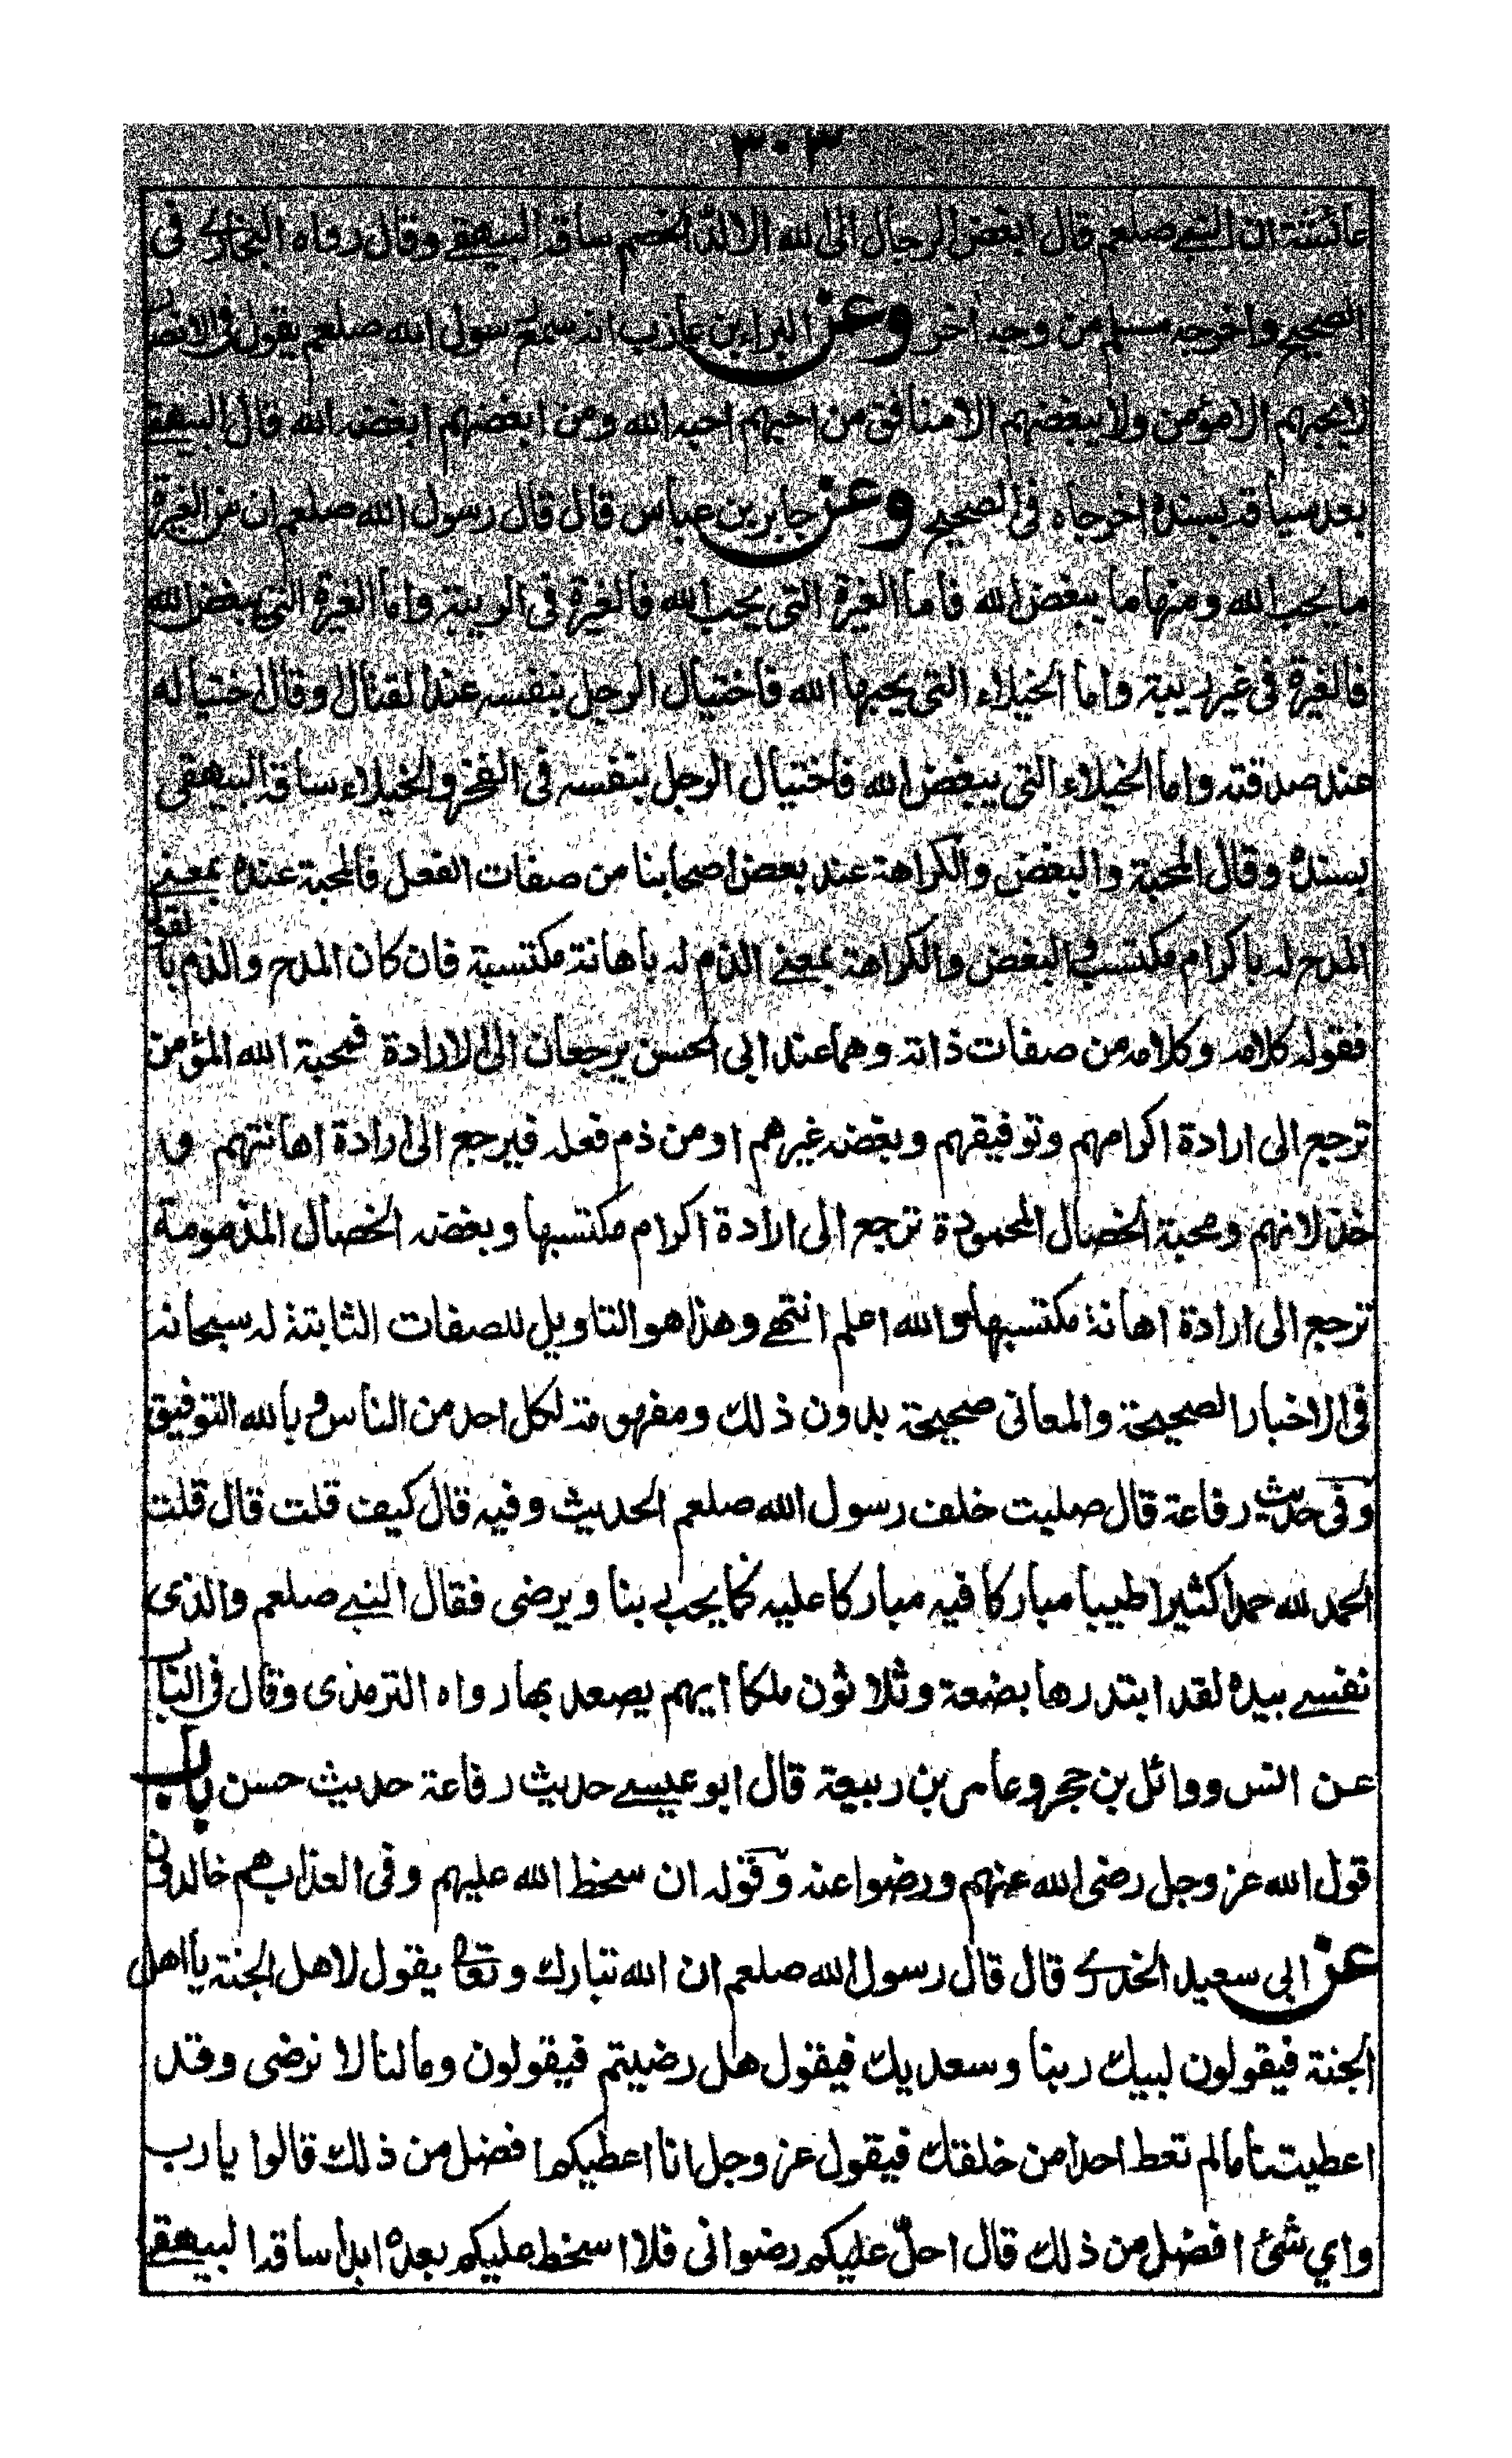 ٣٠٣
عائشة ان النبي صلعم قال ابغض الرجال الى الله الالدّ الخصم ساقه البيهقي وقال رواه البخاري في
الصحيح واخرجه مسلم من وجه اخر وعن البراء بن عازب انه سمع رسول الله صلعم يقول في الانصار
لا يحبهم الا مؤمن ولا يبغضهم الا منافق من احبهم احبه الله ومن ابغضهم ابغضه الله قال البيهقي
بعد سياقه بسنده اخرجاه في الصحيح وعن جابر بن عباس قال قال رسول الله صلعم ان من الغيرة
ما يحب الله ومنها ما يبغض الله فاما الغيرة التي يحب الله فالغيرة في الريبة واما الغيرة التي يبغض الله
فالغيرة في غير ريبة واما الخيلاء التي يحبها الله فاختيال الرجل بنفسه عند القتال وقال اختياله
عند صدقته واما الخيلاء التي يبغض الله فاختيال الرجل بنفسه في الفخر والخيلاء ساقه البيهقى
بسنده وقال المحبة والبغض والكراهة عند بعض اصحابنا من صفات الفعل فالمحبة عنده بمعنى
المدح له باكرام مكتسب والبغض والكراهة بمعنى الذم له باهانة مكتسبة فان كان المدح والذم بالقول
فقوله كلامه وكلامه من صفات ذاته وهما عند ابي الحسن يرجعان الى الارادة فمحبة الله المؤمن
ترجع الى ارادة اكرامهم وتوفيقهم وبغضه غيرهم او من ذم فعله فيرجع الى ارادة اهانتهم و
خذلانهم ومحبة الخصال المحمودة ترجع الى ارادة اكرام مكتسبها وبغضه الخصال المذمومة
ترجع الى ارادة اهانة مكتسبها والله اعلم انتهى وهذا هو التاويل للصفات الثابتة له سبحانه
في الاخبار الصحيحة والمعانى صحيحة بدون ذلك ومفهومة لكل احد من الناس وبالله التوفيق
وفي حديث رفاعة قال صليت خلف رسول الله صلعم الحديث وفيه قال كيف قلت قال قلت
الحمد لله حمدا كثيرا طيبا مباركا فيه مباركا عليه كما يحب ربنا ويرضى فقال النبي صلعم والذى
نفسي بيده لقد ابتدرها بضعة وثلاثون ملكا ايهم يصعد بها رواه الترمذى وقال في الباب
عن انس ووائل بن حجر وعامر بن ربيعة قال ابو عيسى حديث رفاعة حديث حسن باب
قول الله عز وجل رضى الله عنهم ورضوا عنه وقوله ان سخط الله عليهم وفي العذاب هم خالدون
عن ابي سعيد الخدري قال قال رسول الله صلعم ان الله تبارك وتعا يقول لاهل الجنة يا اهل
الجنة فيقولون لبيك ربنا وسعديك فيقول هل رضيتم فيقولون وما لنا لا نرضى وقد
اعطيتنا ما لم تعط احدا من خلقك فيقول عز وجل انا اعطيكم افضل من ذلك قالوا يا رب
واي شئ افضل من ذلك قال احلّ عليكم رضوانى فلا اسخط عليكم بعده ابدا ساقه البيهقي